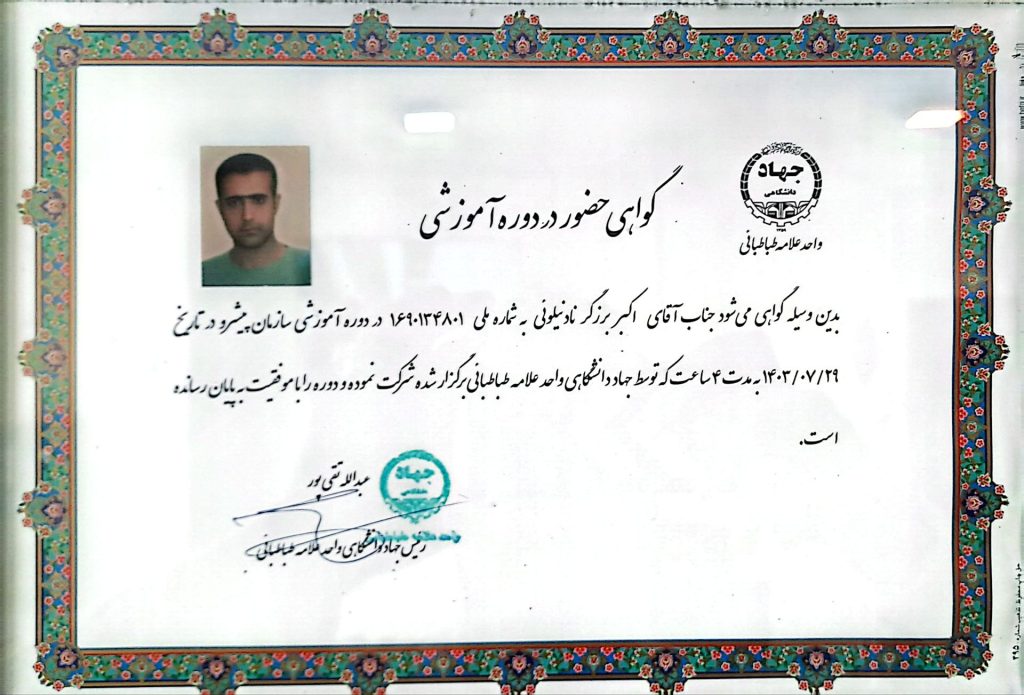 جهاد
دانشگاهی
۱۳۵۹
واحد علامه طباطبائی
گواهی حضور در دوره آموزشی
بدین وسیله گواهی می‌شود جناب آقای اکبر برزگر نادنیلوئی به شماره ملی ۱۶۹۰۱۳۴۸۰۱ در دوره آموزشی سازمان پیشرو در تاریخ
۱۴۰۳/۰۷/۲۹ به مدت ۴ ساعت که توسط جهاد دانشگاهی واحد علامه طباطبائی برگزار شده شرکت نموده و دوره را با موفقیت به پایان رسانده
است.
جهاد
دانشگاهی
عبدالله تقی پور
واحد علامه طباطبائی
رئیس جهاد دانشگاهی واحد علامه طباطبائی